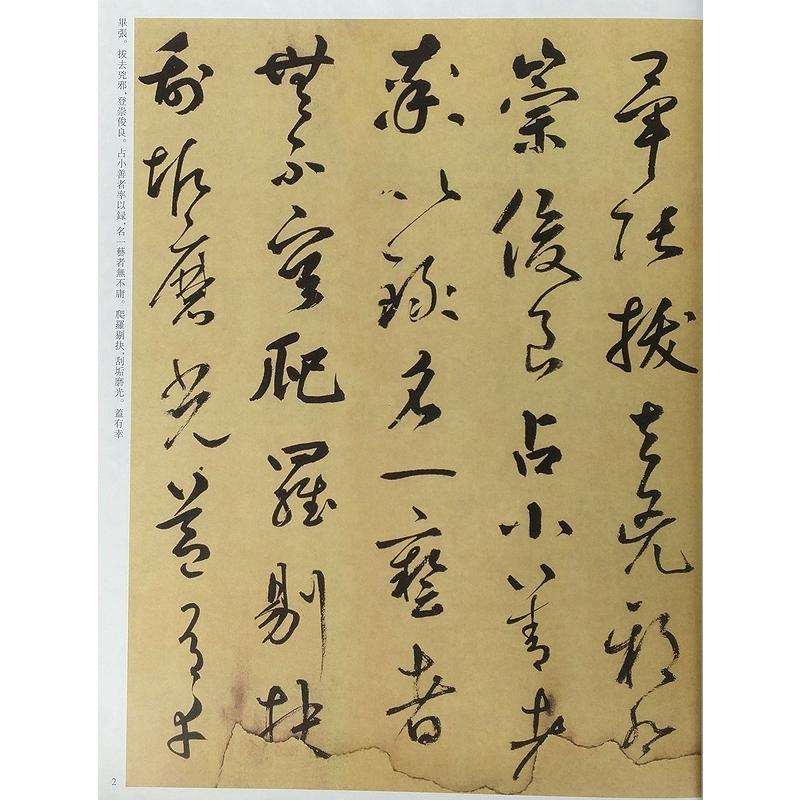 畢張拔去兇邪登
崇俊良占小善者
率以録名一藝者
無不庸爬羅剔抉
刮垢磨光蓋有幸
畢張。拔去兇邪，登崇俊良。占小善者率以録，名一藝者無不庸。爬羅剔抉，刮垢磨光。蓋有幸
2